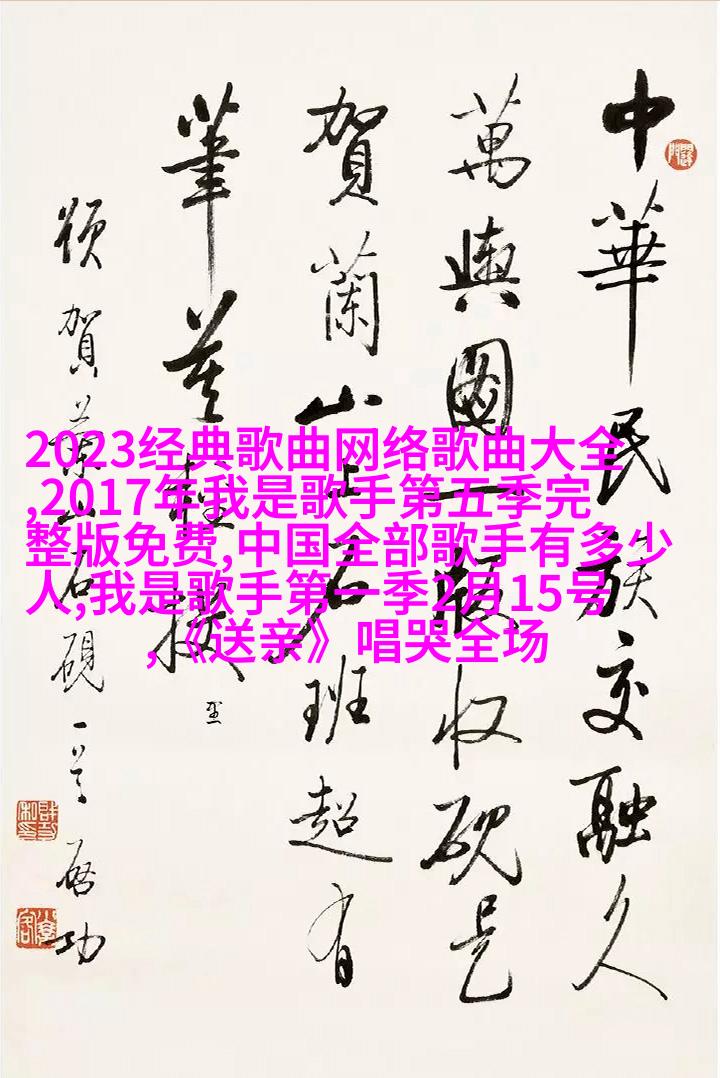 中華民族交融久
萬輿圖一版收硯是
賀蘭山上石班超有
筆莫輕投 里
頌賀蘭山石硯一首 启功
2023经典歌曲网络歌曲大全
,2017年我是歌手第五季完
整版免费,中国全部歌手有多少
人,我是歌手第一季2月15号
,《送亲》唱哭全场